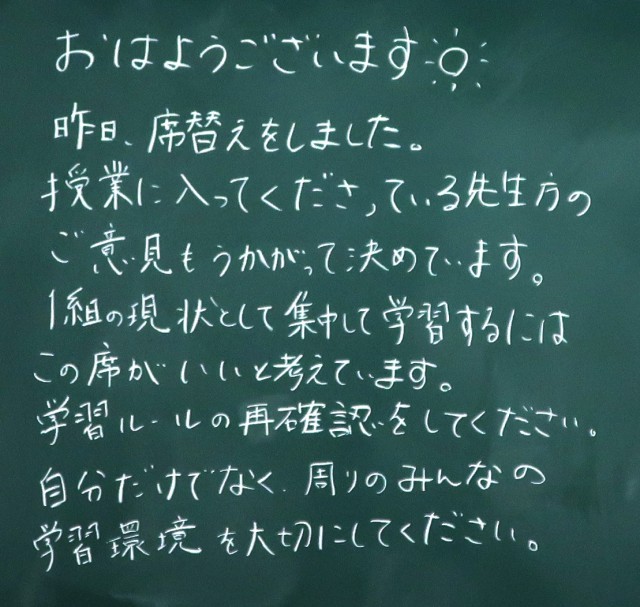 おはようございます
昨日、席替えをしました。
授業に入ってくださっている先生方の
ご意見もうかがって決めています。
1組の現状として集中して学習するには
この席がいいと考えています。
学習ルールの再確認をしてください。
自分だけでなく、周りのみんなの
学習環境を大切にしてください。